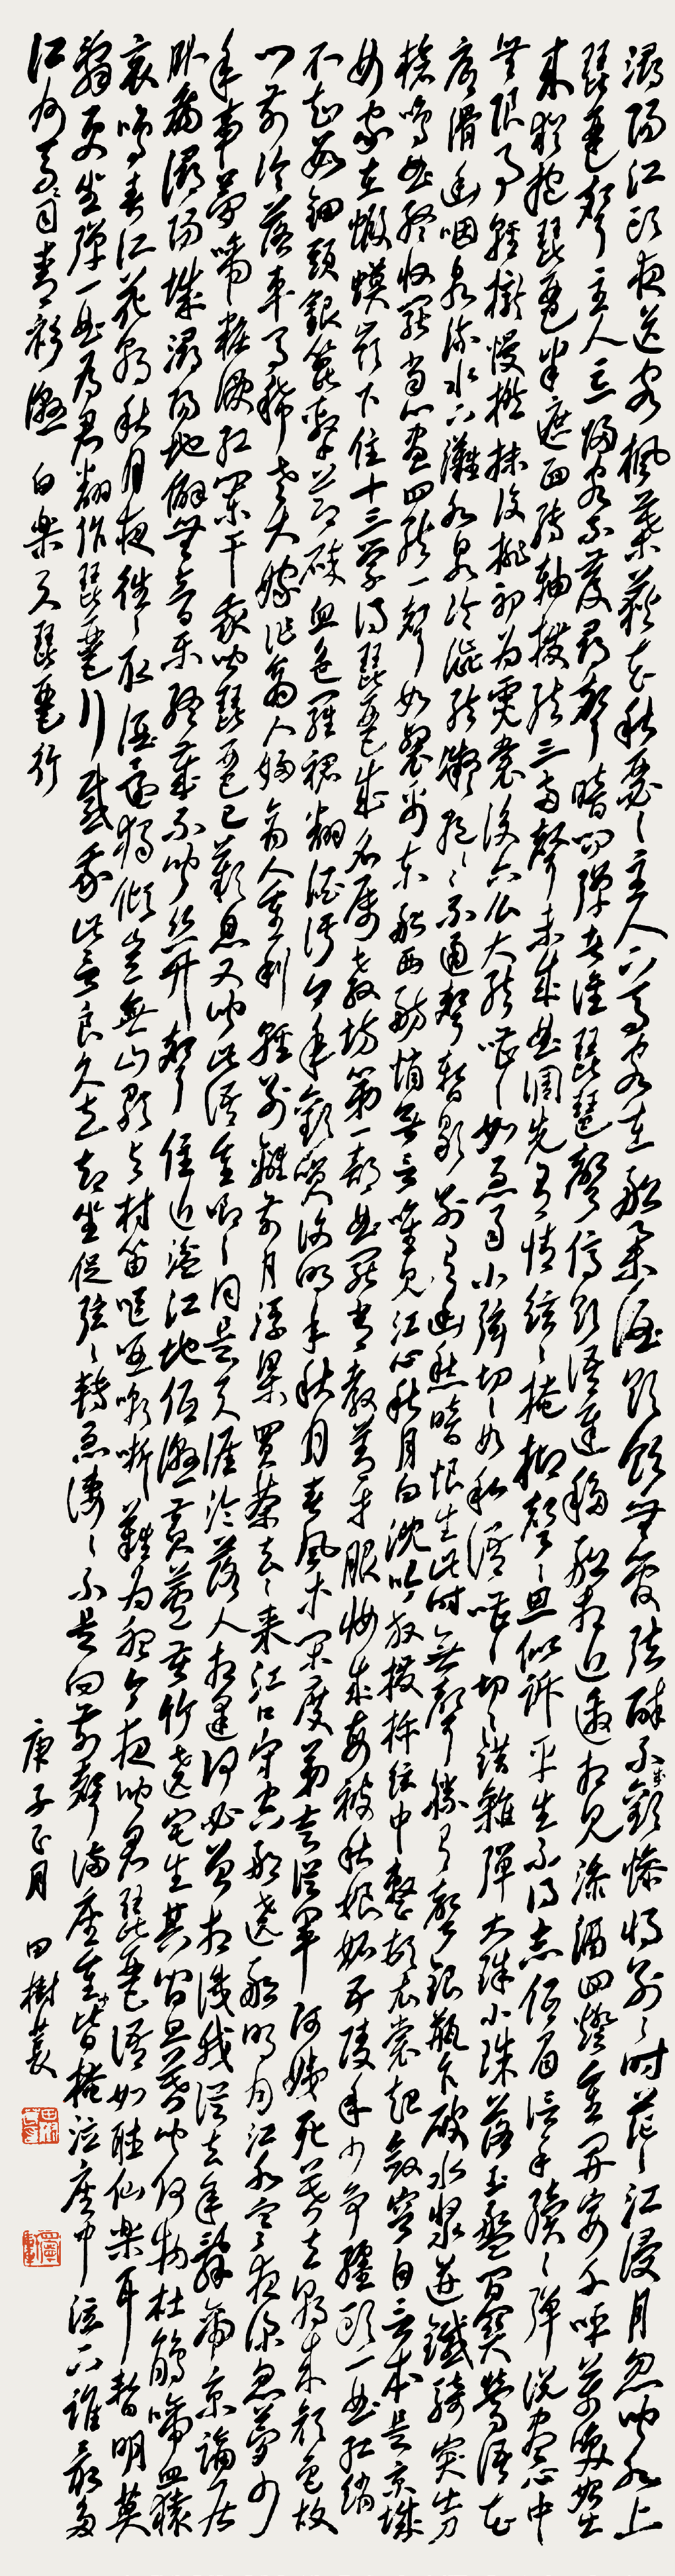 潯陽江頭夜送客楓葉荻花秋瑟瑟主人下馬客在船舉酒欲飲無管弦醉不成歡慘將別別時茫茫江浸月忽聞水上
琵琶聲主人忘歸客不發尋聲暗問彈者誰琵琶聲停欲語遲移船相近邀相見添酒回燈重開宴千呼萬喚始出
來猶抱琵琶半遮面轉軸撥弦三兩聲未成曲調先有情弦弦掩抑聲聲思似訴平生不得志低眉信手續續彈說盡心中
無限事輕攏慢撚抹復挑初為霓裳後六么大弦嘈嘈如急雨小弦切切如私語嘈嘈切切錯雜彈大珠小珠落玉盤間關鶯語花
底滑幽咽泉流水下灘水泉冷澀弦凝絕絕不通聲暫歇別有幽愁暗恨生此時無聲勝有聲銀瓶乍破水漿迸鐵騎突出刀
槍鳴曲終收撥當心畫四弦一聲如裂帛東船西舫悄無言唯見江心秋月白沉吟放撥插弦中整頓衣裳起斂容自言本是京城
女家在蝦蟆陵下住十三學得琵琶成名屬教坊第一部曲罷常教善才服妝成每被秋娘妒五陵年少爭纏頭一曲紅綃
不知數鈿頭銀篦擊節碎血色羅裙翻酒污今年歡笑復明年秋月春風等閒度弟走從軍阿姨死暮去朝來顏色故
門前冷落車馬稀老大嫁作商人婦商人重利輕別離前月浮梁買茶去去來江口守空船遶船明月江水寒夜深忽夢少
年事夢啼粧淚紅闌干我聞琵琶已歎息又聞此語重唧唧同是天涯淪落人相逢何必曾相識我從去年辭帝京謫居
臥病潯陽城潯陽地僻無音樂終歲不聞絲竹聲住近湓江地低濕黃蘆苦竹遶宅生其間旦暮聞何物杜鵑啼血猿
哀鳴春江花朝秋月夜往往取酒還獨傾豈無山歌與村笛嘔啞嘲哳難為聽今夜聞君琵琶語如聽仙樂耳暫明莫
辭更坐彈一曲為君翻作琵琶行感我此言良久立却坐促弦弦轉急淒淒不是向前聲滿座重聞皆掩泣座中泣下誰最多
江州司馬青衫濕 白樂天琵琶行 庚子正月 田樹萇